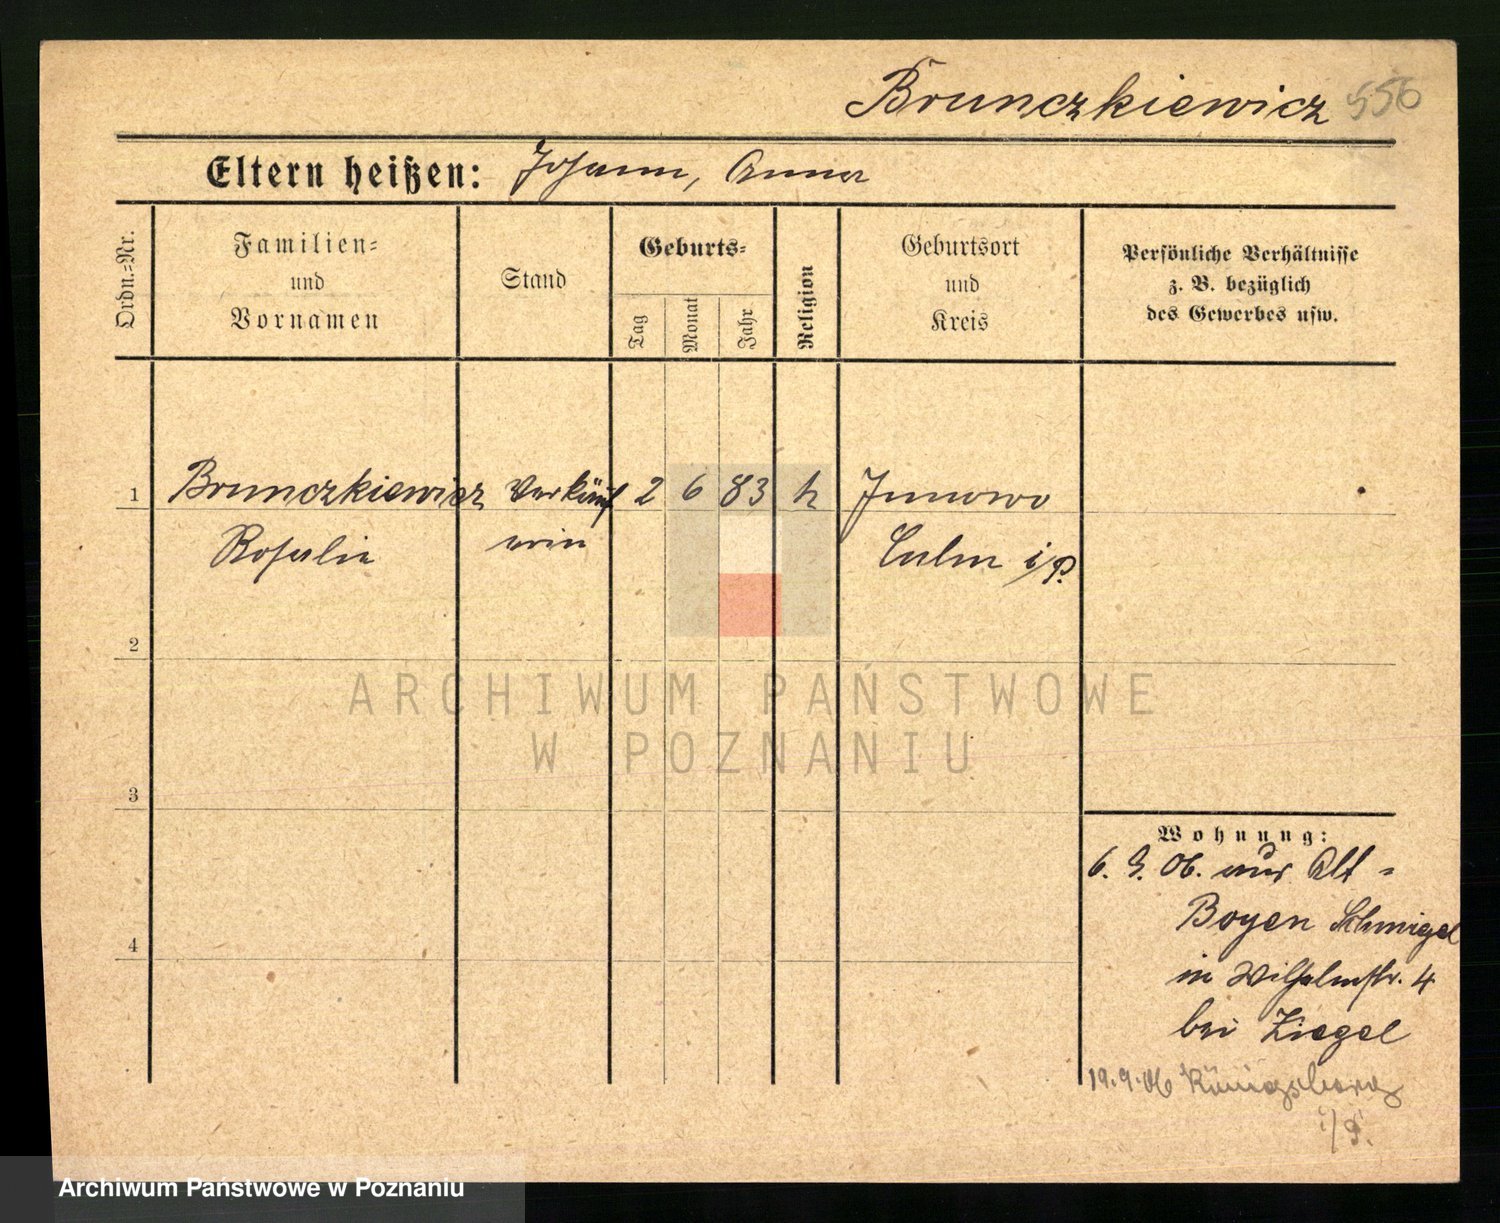 Brunczkiewicz 556
Eltern heißen: Johann, Anna
Ordn.=Nr.
Familien=
und
Vornamen
Stand
Geburts=
Tag
Monat
Jahr
Religion
Geburtsort
und
Kreis
Persönliche Verhältnisse
z. B. bezüglich
des Gewerbes usw.
1 Brunczkiewicz Verkäuf 2 6 83 k Junowo
Rosalie erin Culm i/P.
2
ARCHIWUM PAŃSTWOWE
W POZNANIU
3
4
Wohnung:
6. 9. 06. aus Alt=
Boyen Schmigel
in Wilhelmstr. 4
bei Ziegel
19.9.06 Königsberg
i/P.
Archiwum Państwowe w Poznaniu